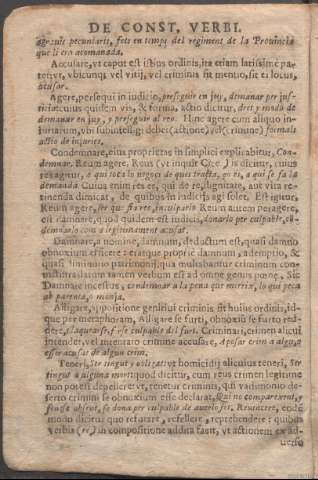 DE CONST. VERBI.
agravis pecuniaris, fets en temps del regiment de la Provincia
que li era acomanada.
Accusare, vt caput est istius ordinis, ita etiam latissimè pa-
tet: vt, vbicunq; vel vitij, vel criminis fit mentio, sit ei locus,
acusar.
Agere, persequi in iudicio, perseguir en juy, demanar per jus-
ticia: cuius quidem vis, & forma, actio dicitur, dret y modo de
demanar en juy, y perseguir al reo. Hinc agere cum aliquo in-
iuriarum, vbi subintelligi debet (actione) vel (crimine) formals
actio de injuries.
Condemnare, eius proprietas in simplici explicabitur, Con-
demnar. Reum agere, Reus (vt inquit Cice.) is dicitur, cuius
res agitur, a qui toca lo negoci de ques tracta, ço es, a qui se fa la
demanda. Cuius enim res est, qui de re, dignitate, aut vita re-
tinenda dimicat, de quibus in iudicijs agi solet. Est igitur,
Reum agere, fer que fia reo, inculparlo Reum autem peragere,
est damnare, quod quidem est iudicis, donarlo per culpable, co-
demnarlo com a llegitimament acusat.
Damnare, a nomine, damnum, deductum est, quasi damno
obnoxium efficere: estque proprie damnum, ademptio, &
quasi diminutio patrimonij, qua mulctabantur criminum con-
uicti: translatum tamen verbum est ad omne genus pœnæ. Sic
Damnare incestus, condemnar a la pena que mereix, lo qui peca
ab parenta, o monja.
Alligare, appositione genitiui criminis fit huius ordinis, id-
que per metaphoram, Alligare se furti, obnoxiũ se furto red-
dere, enlaçarse, ferse culpable del furt. Criminari, crimen alicui
intendere, vel mentario crimine accusare, Aposar crim a algu, o
esser acusat de algun crim.
Teneri, Ser tingut y obligat, vt homicidij alicuius teneri, Ser
tingut a alguna mort: quod dicitur, cum reus crimen legitime
non potest depellere: vt, tenetur criminis, qui vadimonio de-
serto criminis se obnoxium esse declarat, Qui no comparexent, y
fense absent, se dona per culpable de aver lo fet. Reuincere, eodẽ
modo dicitur quo refutare, refellere, reprehendere: quibus
verbis (re) in compositione addita facit, vt actionem ex ad-
uerso